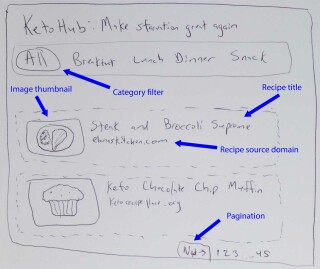 KetoHub: Make starvation great again
All Breakfast Lunch Dinner Snack
Image thumbnail
Category filter
Recipe title
Steak and Broccoli Supreme
Recipe source domain
Keto Chocolate Chip Muffin
Pagination
Next → 1 2 3 ... 45